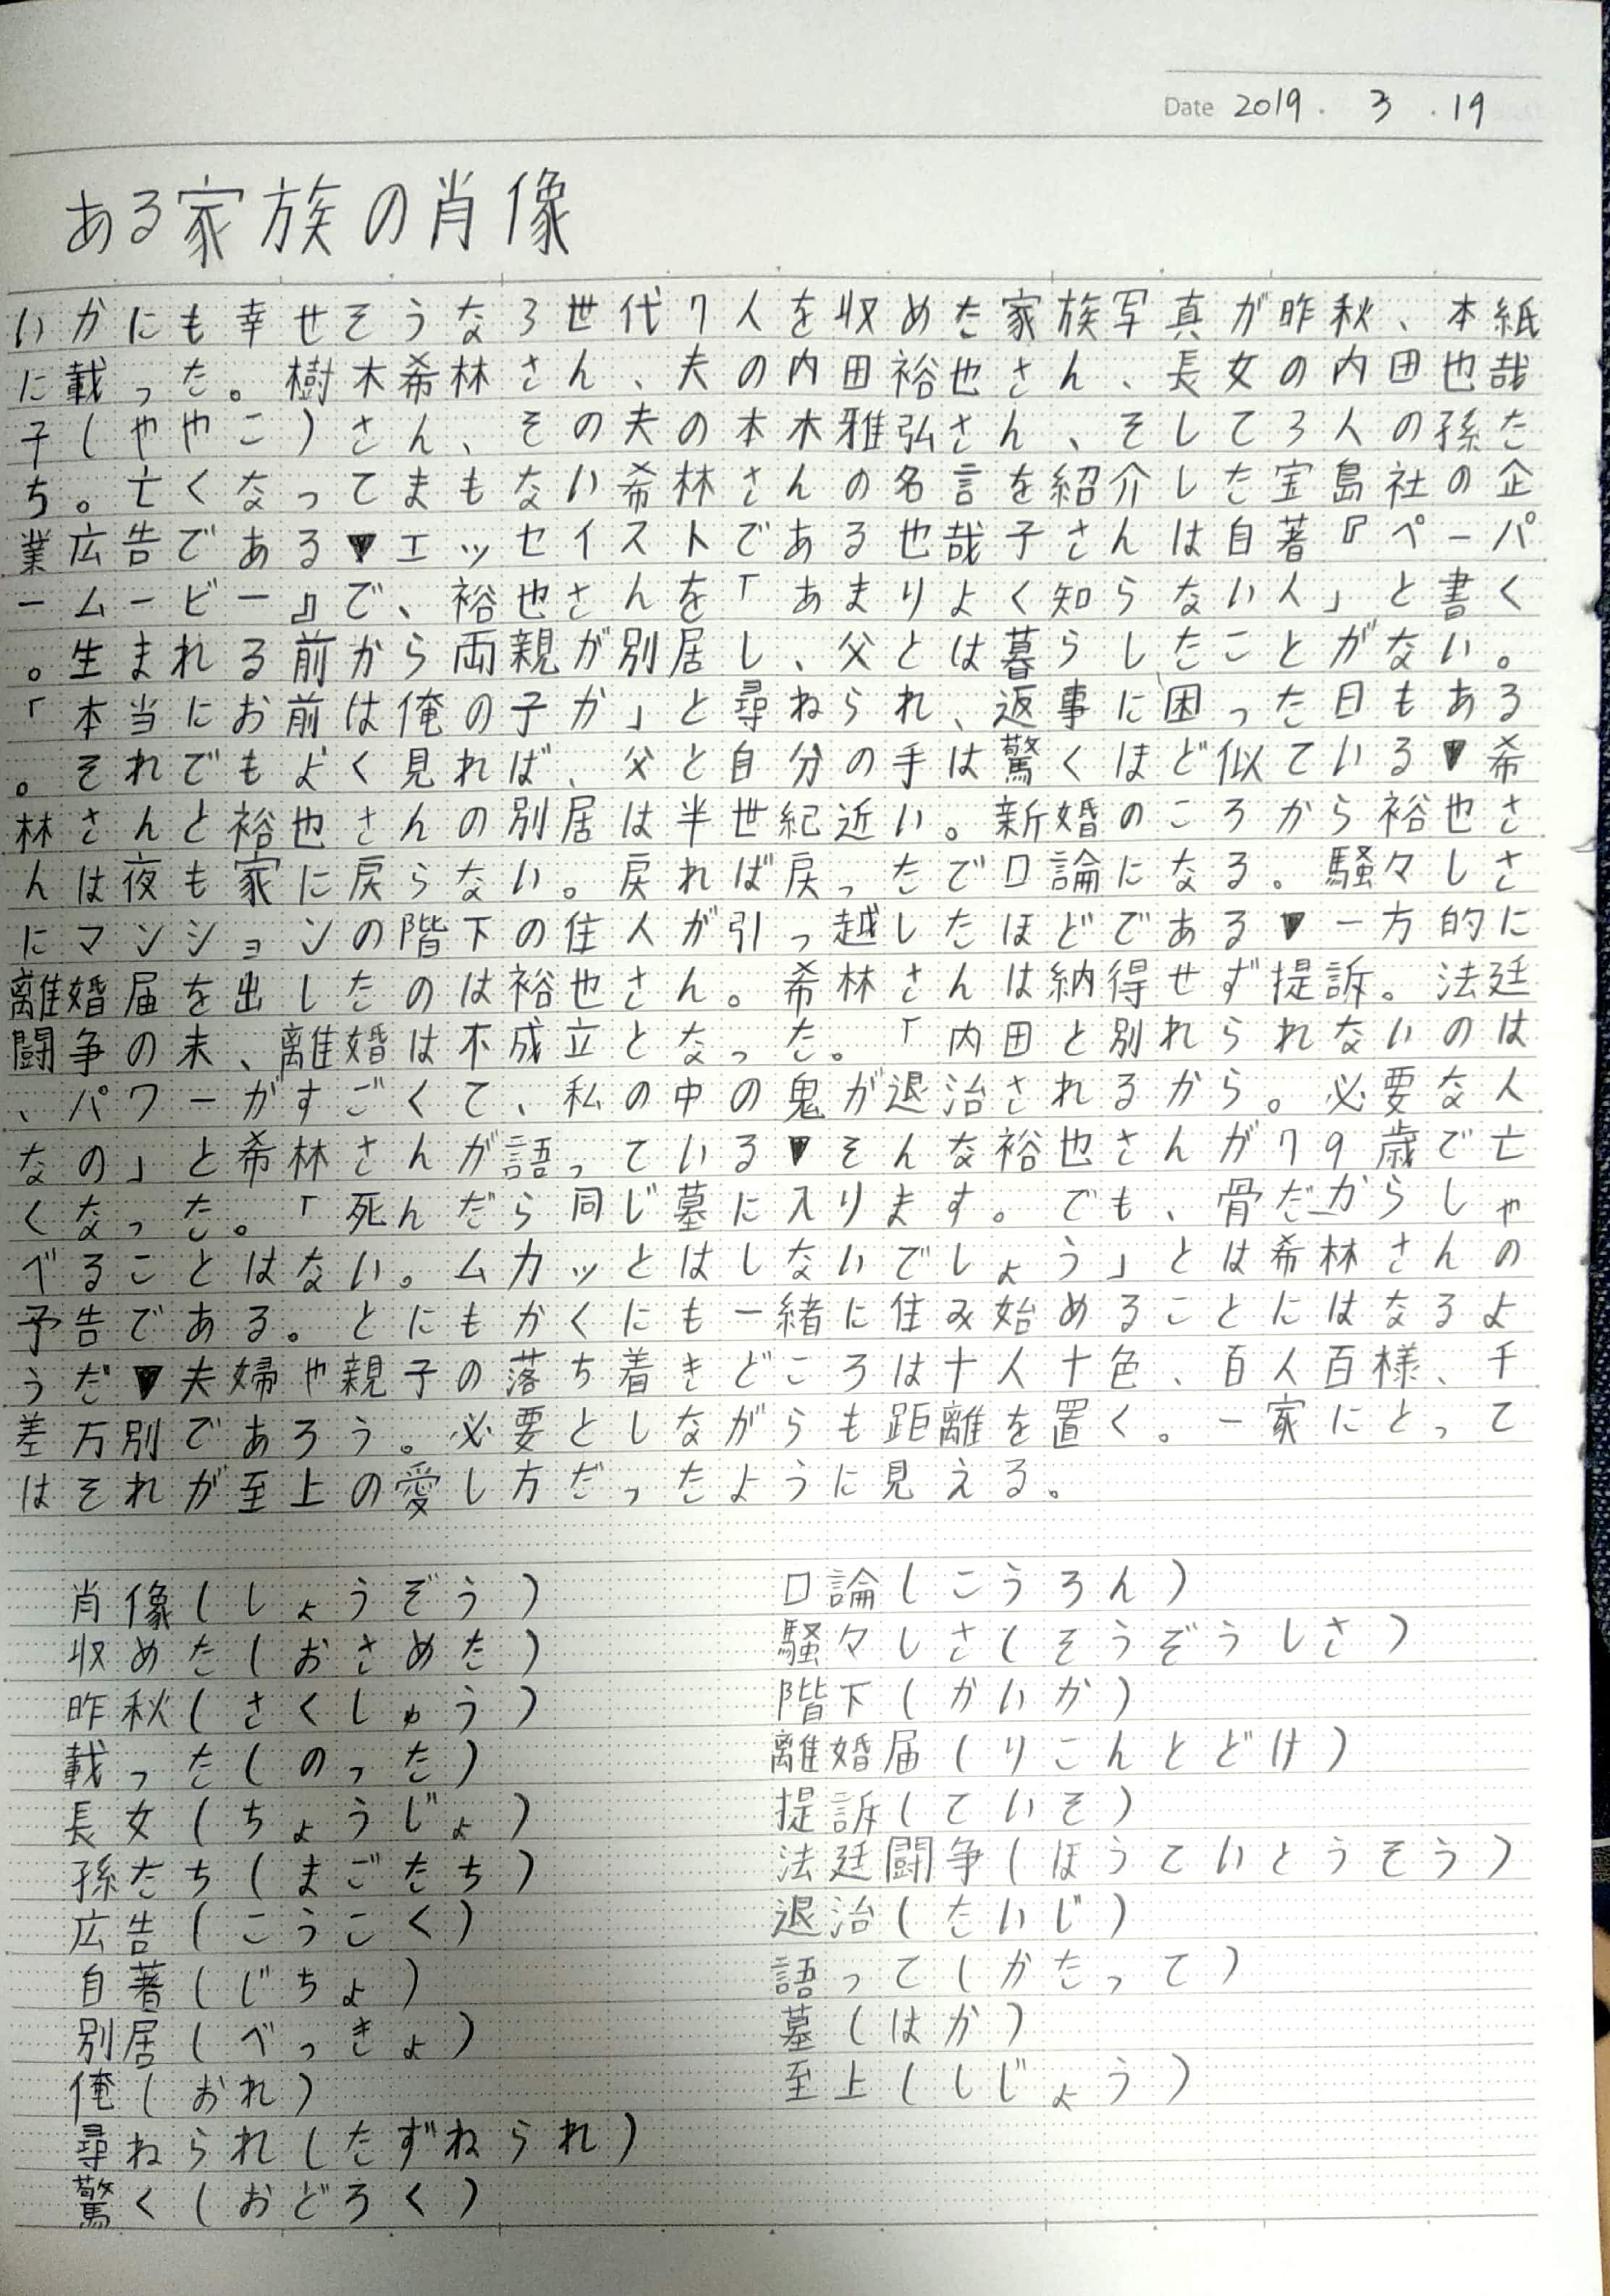 Date 2019. 3 .19
ある家族の肖像
いかにも幸せそうな3世代7人を収めた家族写真が昨秋、本紙
に載った。樹木希林さん、夫の内田裕也さん、長女の内田也哉
子(ややこ)さん、その夫の本木雅弘さん、そして3人の孫た
ち。亡くなってまもない希林さんの名言を紹介した宝島社の企
業広告である▼エッセイストである也哉子さんは自著『ペーパ
ームービー』で、裕也さんを「あまりよく知らない人」と書く
。生まれる前から両親が別居し、父とは暮らしたことがない。
「本当にお前は俺の子か」と尋ねられ、返事に困った日もある
。それでもよく見れば、父と自分の手は驚くほど似ている▼希
林さんと裕也さんの別居は半世紀近い。新婚のころから裕也さ
んは夜も家に戻らない。戻れば戻ったで口論になる。騒々しさ
にマンションの階下の住人が引っ越したほどである▼一方的に
離婚届を出したのは裕也さん。希林さんは納得せず提訴。法廷
闘争の末、離婚は不成立となった。「内田と別れられないのは
、パワーがすごくて、私の中の鬼が退治されるから。必要な人
なの」と希林さんが語っている▼そんな裕也さんが79歳で亡
くなった。「死んだら同じ墓に入ります。でも、骨だからしゃ
べることはない。ムカッとはしないでしょう」とは希林さんの
予告である。とにもかくにも一緒に住み始めることにはなるよ
うだ▼夫婦や親子の落ち着きどころは十人十色、百人百様、千
差万別であろう。必要としながらも距離を置く。一家にとって
はそれが至上の愛し方だったように見える。
肖像(しょうぞう)
収めた(おさめた)
昨秋(さくしゅう)
載った(のった)
長女(ちょうじょ)
孫たち(まごたち)
広告(こうこく)
自著(じちょ)
別居(べっきょ)
俺(おれ)
尋ねられ(たずねられ)
驚く(おどろく)
口論(こうろん)
騒々しさ(そうぞうしさ)
階下(かいか)
離婚届(りこんとどけ)
提訴(ていそ)
法廷闘争(ほうていとうそう)
退治(たいじ)
語って(かたって)
墓(はか)
至上(しじょう)